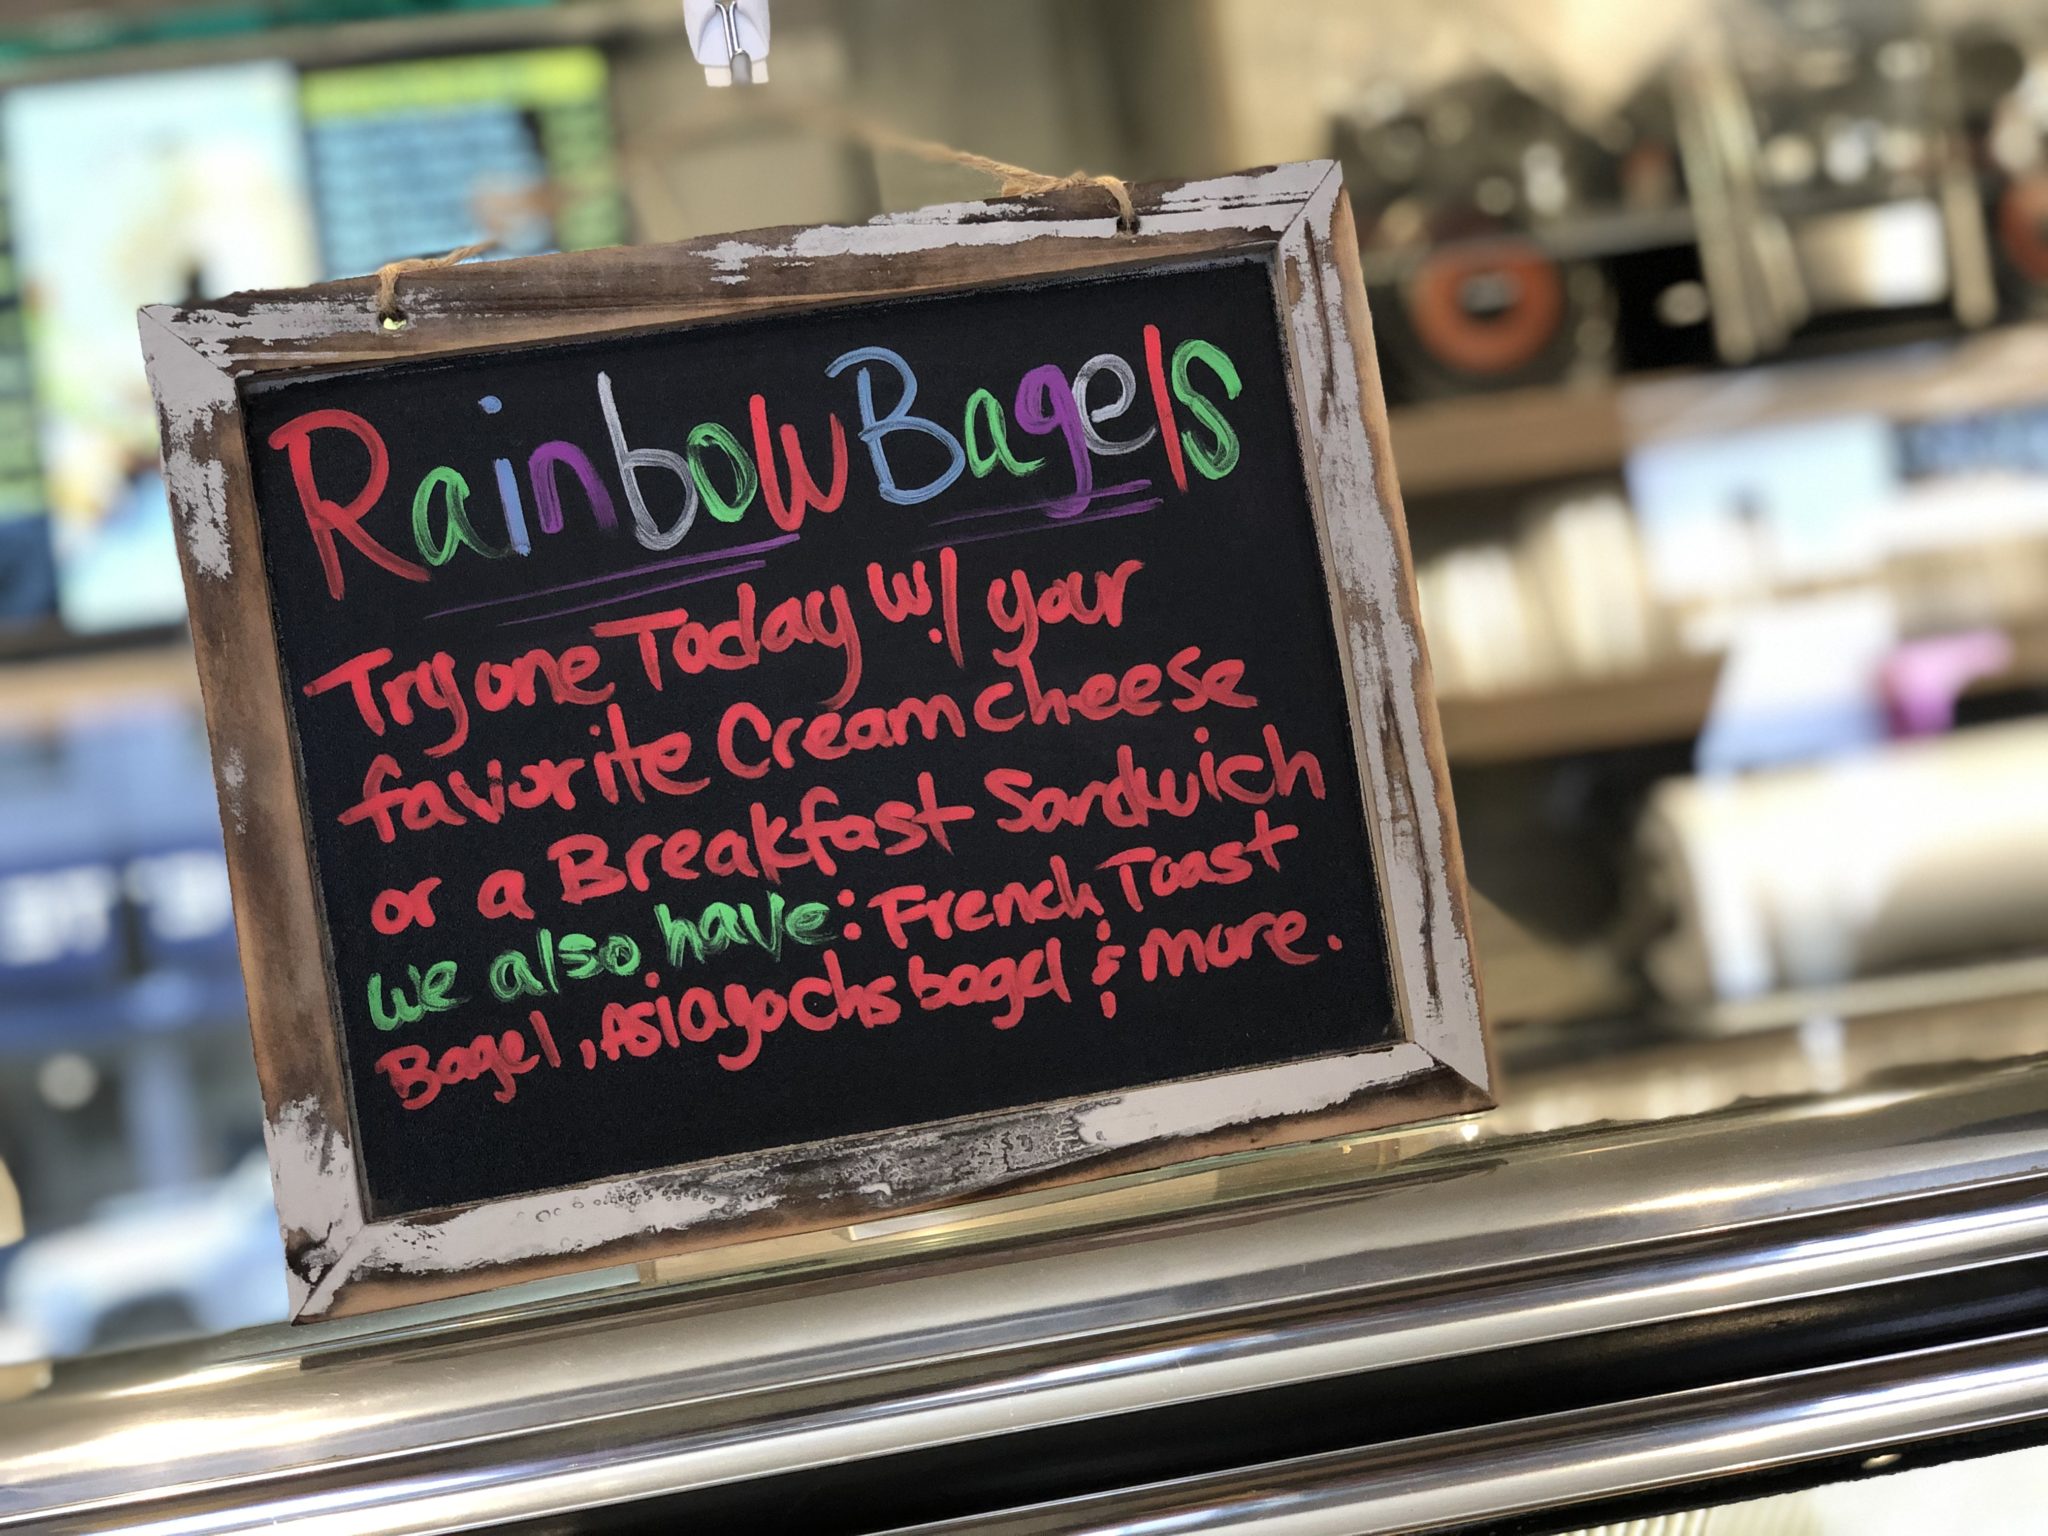 Rainbow Bagels
Try one Today w/ your
favorite Cream cheese
or a Breakfast Sandwich
we also have: French Toast
Bagel, Asiago chs bagel & more.